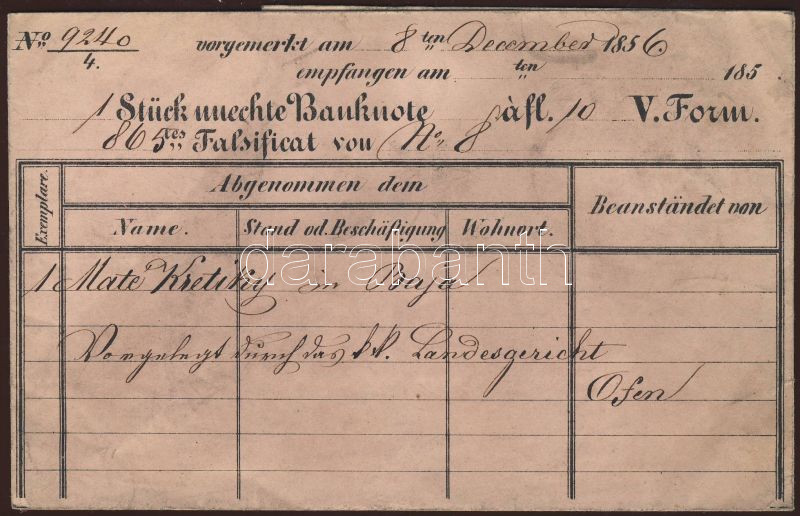 No 9240/4. vorgemerkt am 8ten December 1856.
empfangen am ten 185
1 Stück unechte Banknote àfl. 10 V. Form.
865tes Falsificat von No 8
Exemplare.
Abgenommen dem
Beanständet von
Name. Stand od. Beschäftigung Wohnort.
1 Maté Kretsky in Baja
darabanth
Vorgelegt durch das k k. Landesgericht
Ofen